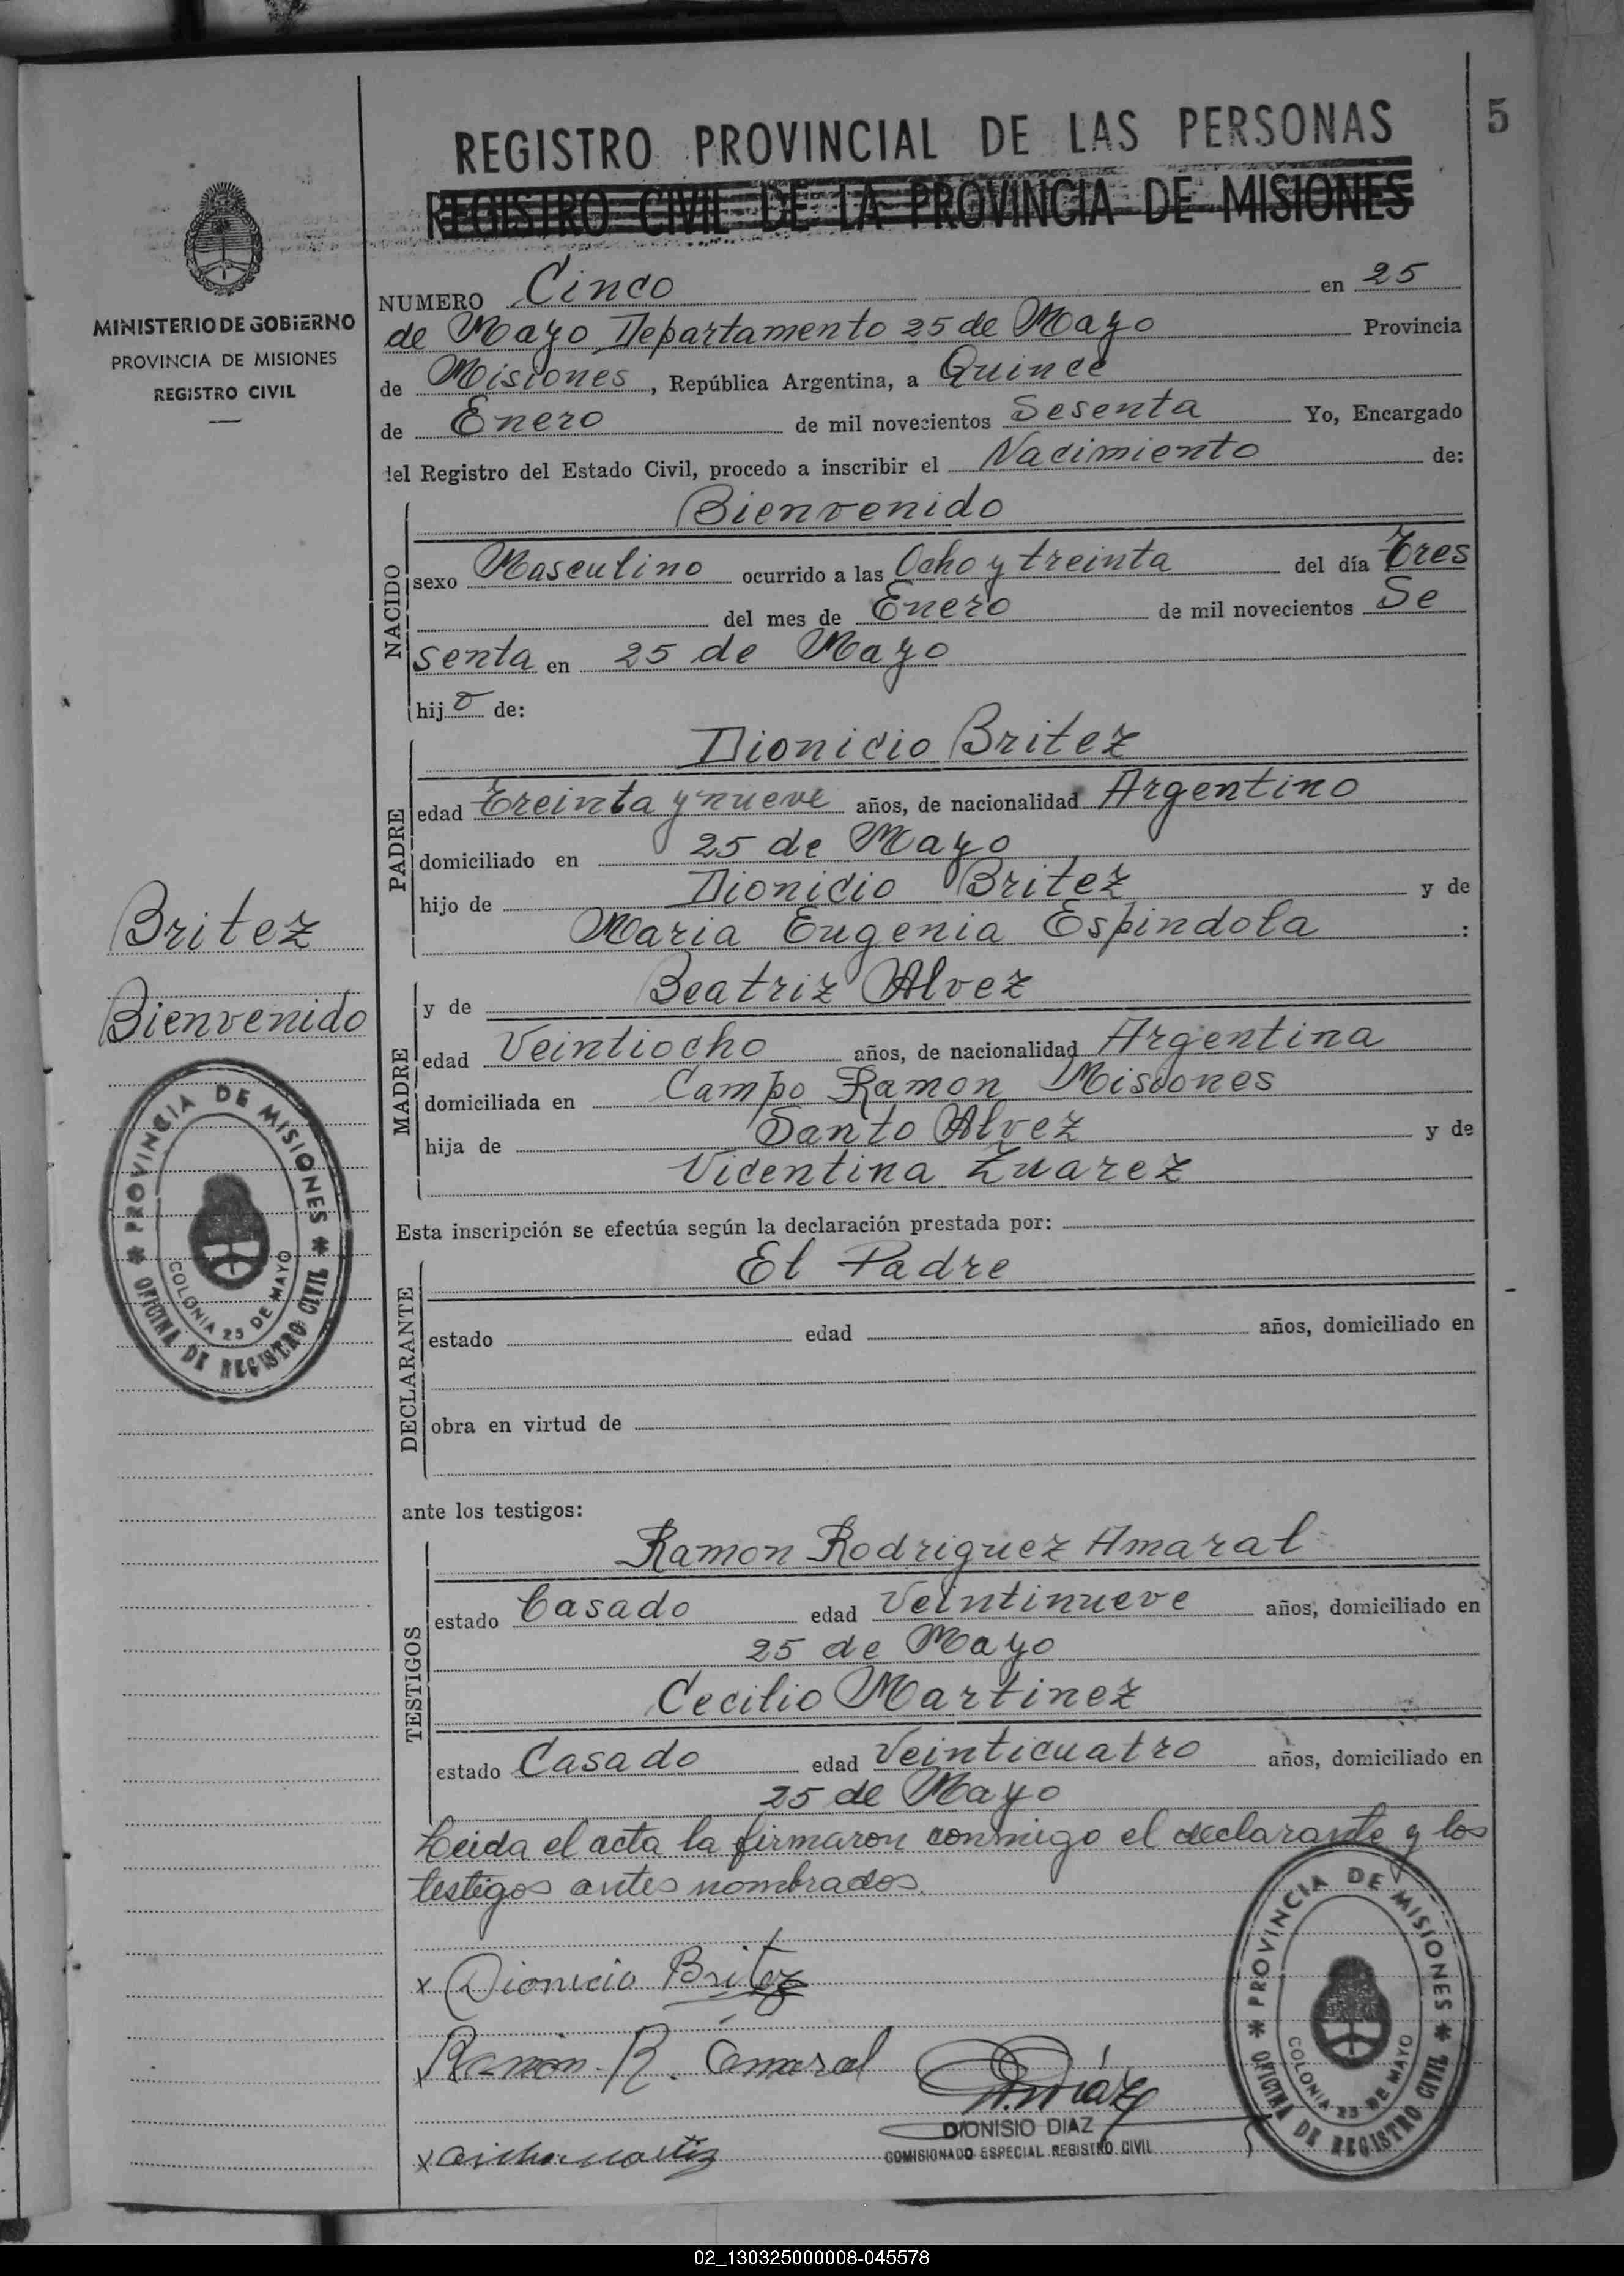 5
REGISTRO PROVINCIAL DE LAS PERSONAS
REGISTRO CIVIL DE LA PROVINCIA DE MISIONES
MINISTERIO DE GOBIERNO
PROVINCIA DE MISIONES
REGISTRO CIVIL
NUMERO Cinco en 25
de Mayo Departamento 25 de Mayo Provincia
de Misiones, República Argentina, a Quince
de Enero de mil novecientos Sesenta Yo, Encargado
del Registro del Estado Civil, procedo a inscribir el Nacimiento de:
NACIDO
Bienvenido
sexo Masculino ocurrido a las Ocho y treinta del día Tres
del mes de Enero de mil novecientos Se
senta en 25 de Mayo
hijo de:
PADRE
Dionicio Britez
edad Treinta y nueve años, de nacionalidad Argentino
domiciliado en 25 de Mayo
hijo de Dionicio Britez y de
Maria Eugenia Espindola :
Britez
Bienvenido
MADRE
y de Beatriz Alvez
edad Veintiocho años, de nacionalidad Argentina
domiciliada en Campo Ramon Misiones
hija de Santo Alvez y de
Vicentina Zuarez
PROVINCIA DE MISIONES
COLONIA 25 DE MAYO
OFICINA DE REGISTRO CIVIL
Esta inscripción se efectúa según la declaración prestada por:
DECLARANTE
El Padre
estado edad años, domiciliado en
obra en virtud de
ante los testigos:
TESTIGOS
Ramon Rodriguez Amaral
estado Casado edad Veintinueve años, domiciliado en
25 de Mayo
Cecilio Martinez
estado Casado edad Veinticuatro años, domiciliado en
25 de Mayo
Leida el acta la firmaron conmigo el declarante y los
testigos antes nombrados.
x Dionicio Britez
x Ramon R. Amaral
x
Diáz
DIONISIO DIAZ
COMISIONADO ESPECIAL REGISTRO CIVIL
PROVINCIA DE MISIONES
COLONIA 25 DE MAYO
OFICINA DE REGISTRO CIVIL
02_130325000008-045578